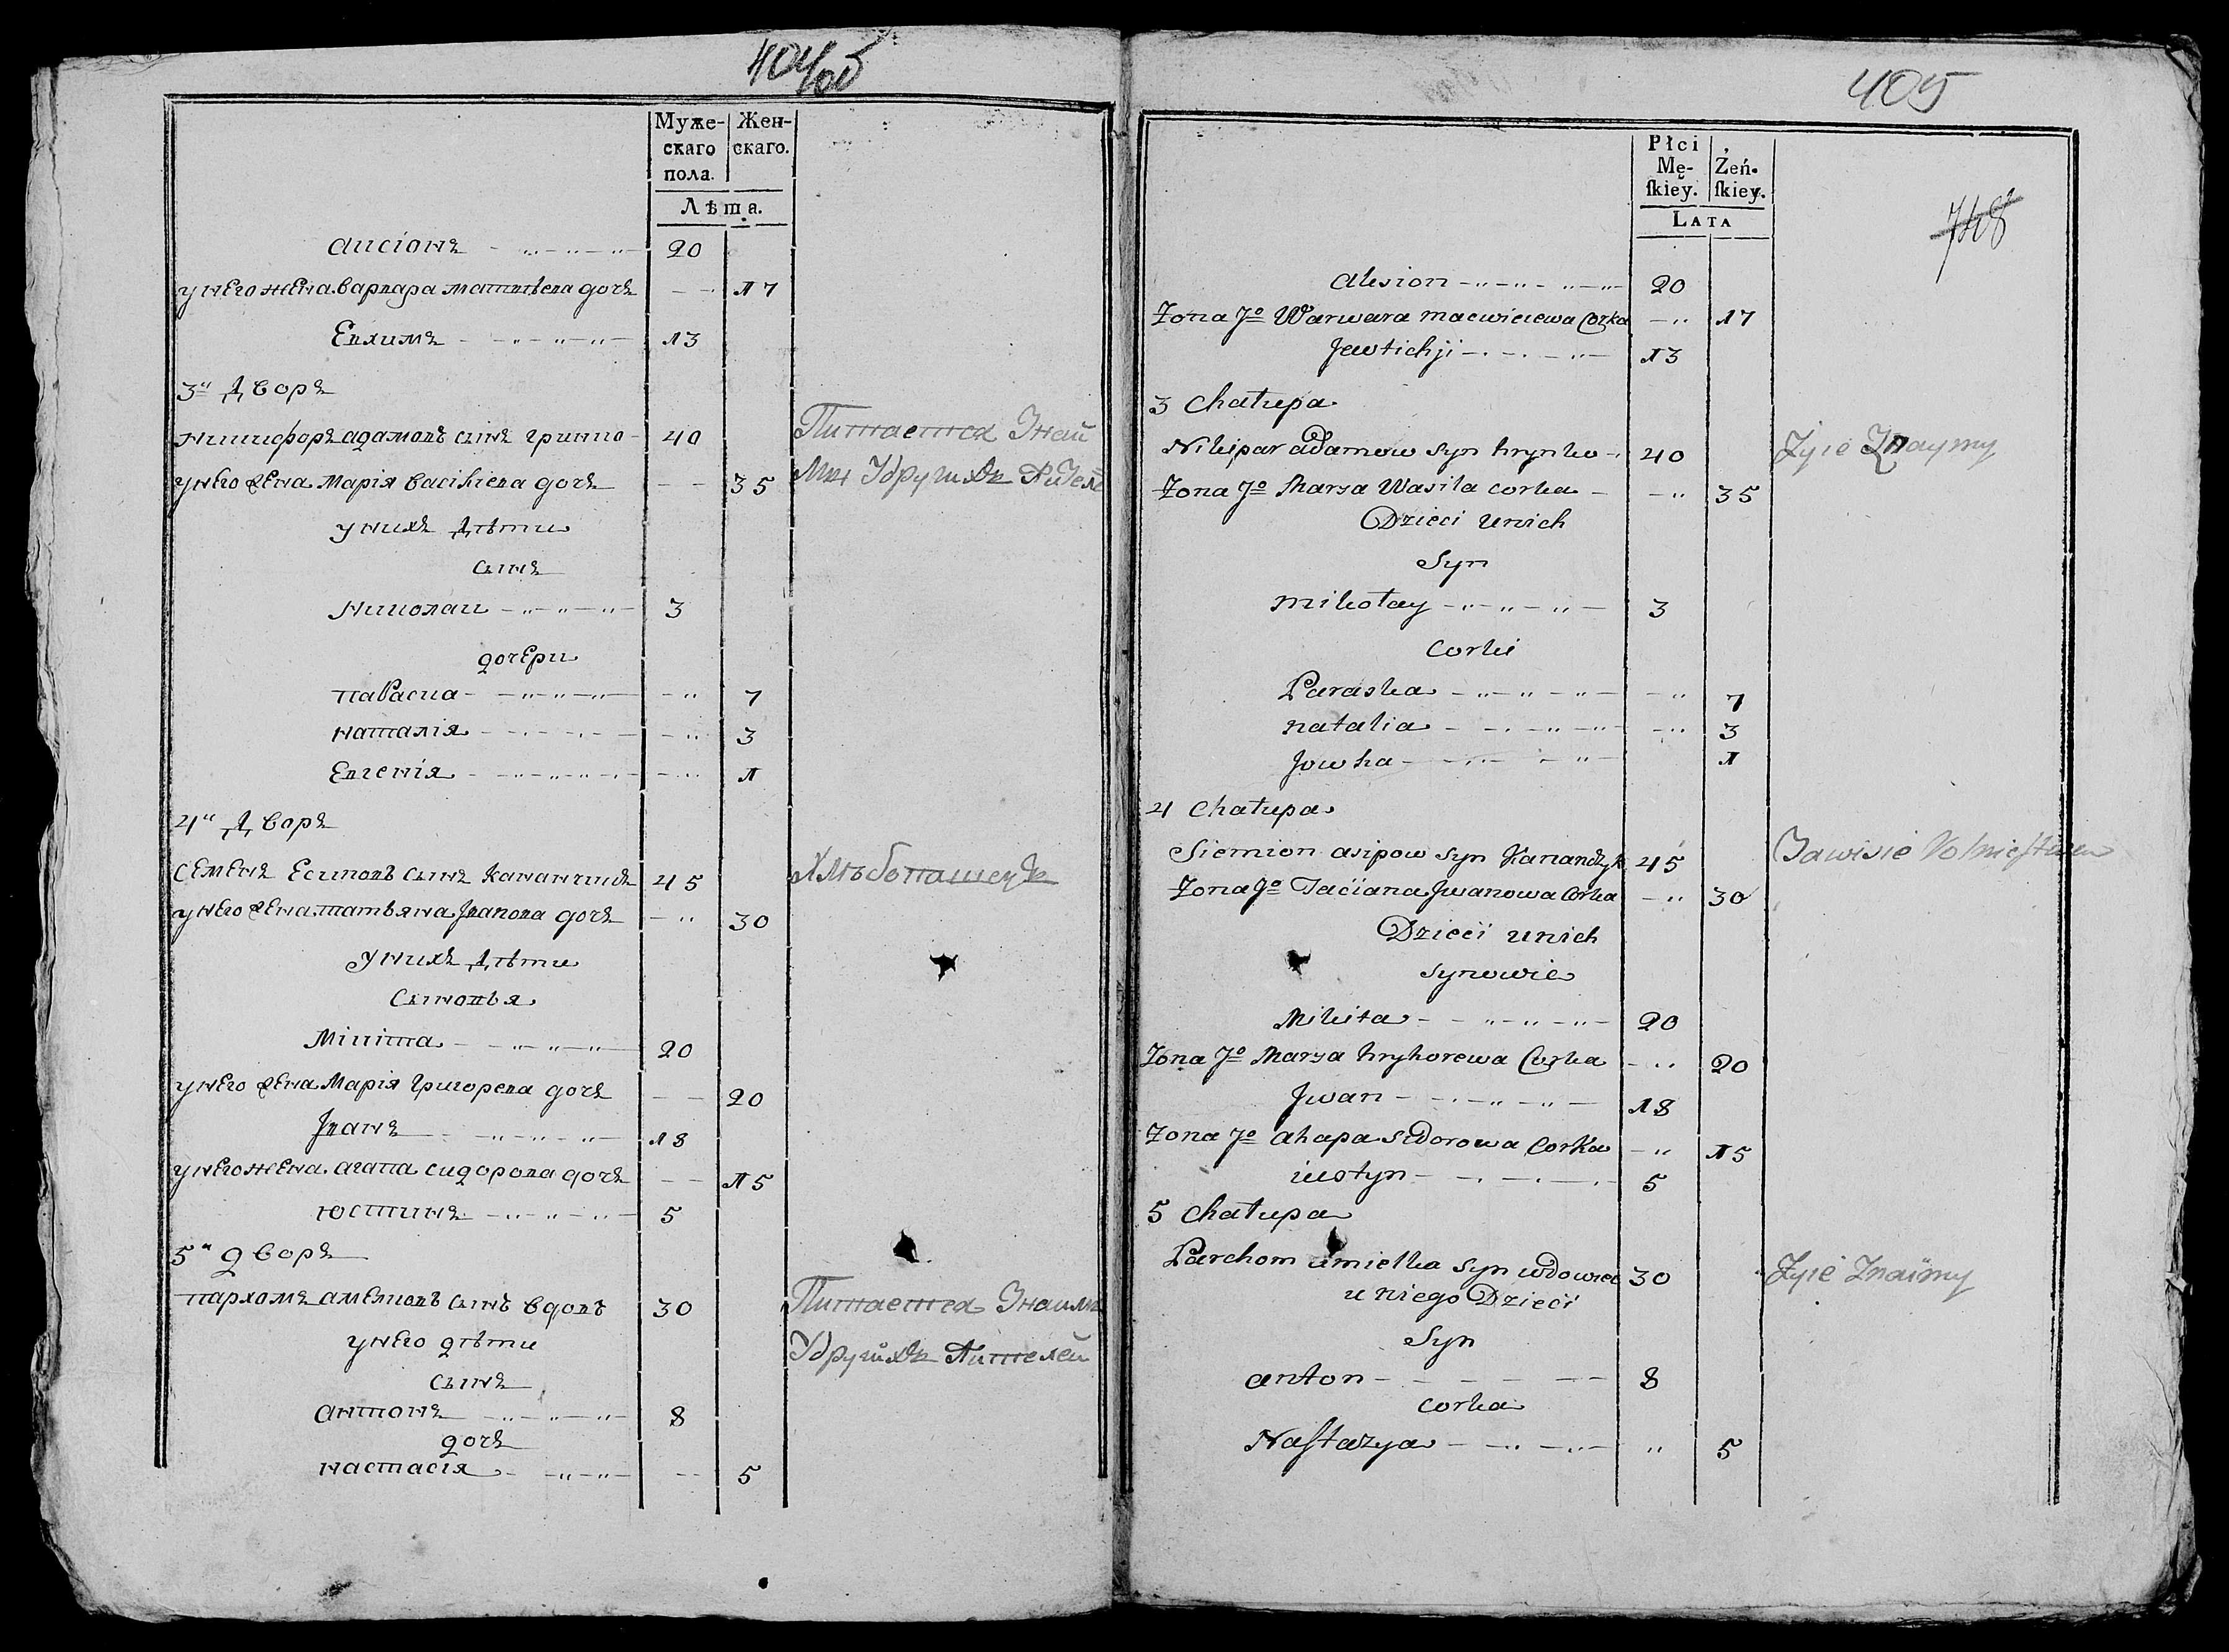 404об
Муже-
скаго
пола.
Жен-
скаго.
Лѣта.
Аисіонъ 20
у него жена варвара матвѣева дочь 17
Евхимъ 13
3й Дворъ
никифоръ адамовъ сынъ гринко 40
Питается Знай
у него жена Марія Васильева дочь 35
Ми Удругихъ
у нихъ Дѣти
сынъ
николаи 3
дочери
параска 7
наталія 3
Евгенія 1
4й Дворъ
семенъ Есиповъ сынъ Кананчикъ 45
Хлѣбопашецъ
у него жена татьяна Іванова дочь 30
у нихъ Дѣти
Сыновья
Микита 20
у него жена Марія Григорева дочь 20
Іванъ 18
у него жена агапа сидорова дочь 15
юстинъ 5
5й дворъ
пархомъ аметовъ сынъ вдовъ 30
Питается Знаими
у него дѣти
Удругихъ
сынъ
антонъ 8
дочь
настасія 5
405
748
Płci
Mę-
ſkiey.
Żeń-
ſkiey.
LATA
Alesion 20
Żona Jo Warwara macwieiewa Corka 17
Jewtichji 13
3 Chałupa
Nikipar adamow syn hrynko 40
Żyie Znaymy
Żona Jo Marya Wasila corka 35
Dzieci unich
Syn
mikołay 3
Corki
Paraska 7
natalia 3
Jowha 1
4 Chałupa
Siemion asipow syn Kanandzyk 45
Żona Jo Taciana Jwanowa Corka 30
Dzieci unich
synowie
Mikita 20
Żona Jo Marya hryhorewa Corka 20
Jwan 18
Żona Jo ahapa sidorowa Corka 15
iustyn 5
5 Chałupa
Parchom umielka syn wdowiec 30
Żyie Znaimy
u niego Dzieci
Syn
anton 8
corka
Naſtazya 5